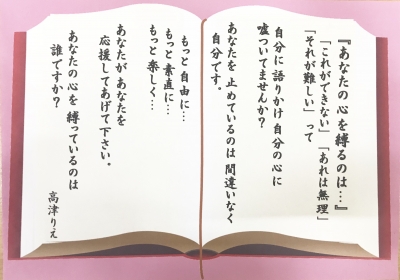 『あなたの心を縛るのは…』
「これができない」「あれは無理」
「それが難しい」って
自分に語りかけ自分の心に
嘘ついてませんか？
あなたを 止めているのは 間違いなく
自分です。
もっと 自由に…
もっと 素直に…
もっと 楽しく…
あなたが あなたを
応援してあげて下さい。
あなたの心を 縛っているのは
誰ですか？
高津りえ